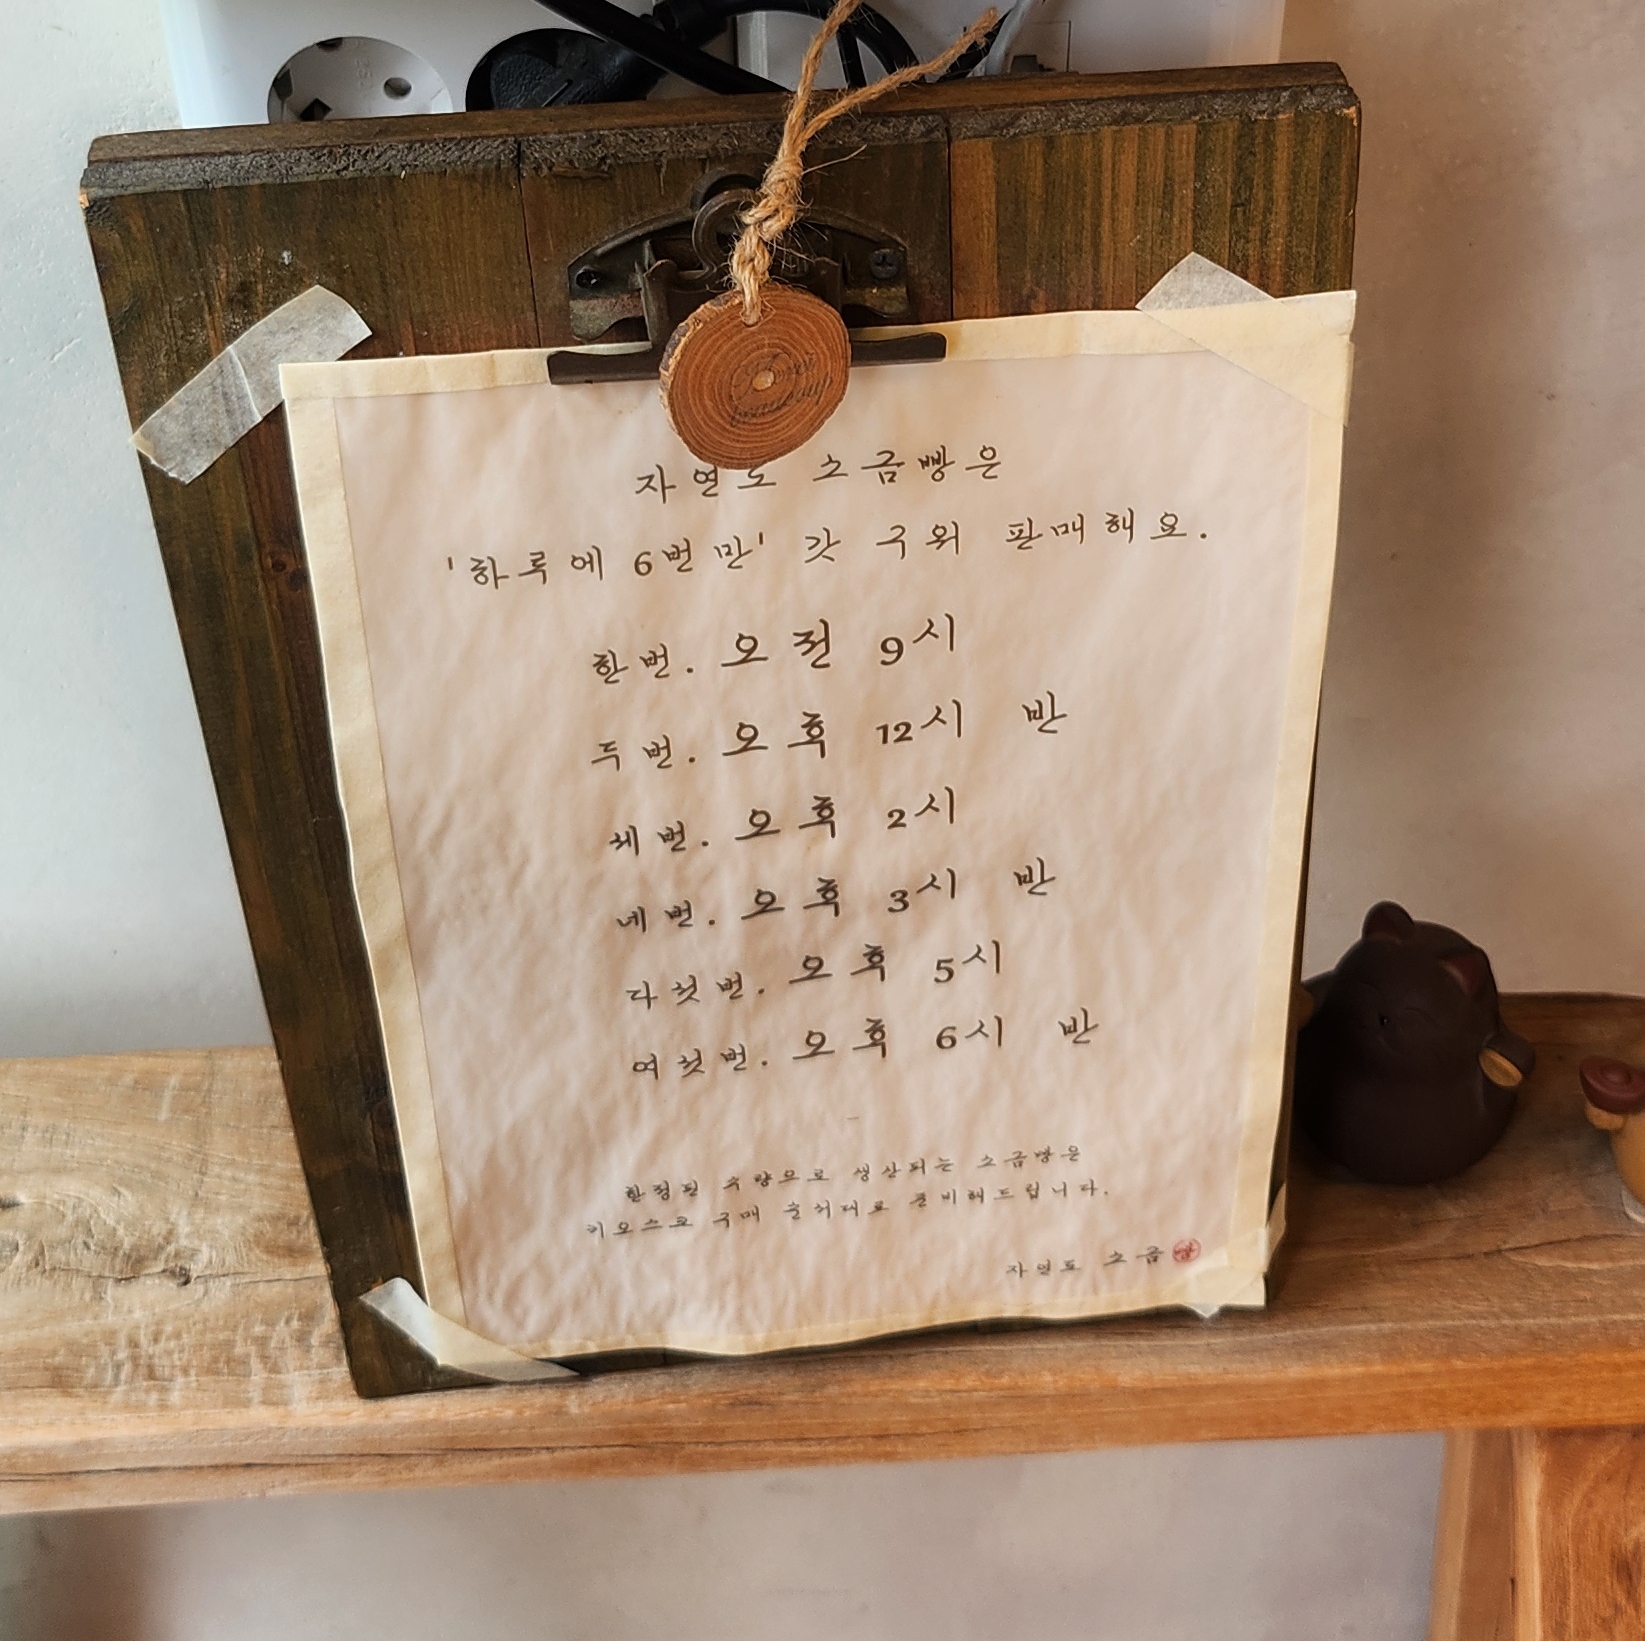 beaucoup
자연도 소금빵은
'하루에 6번만' 갓 구워 판매해요.
한번. 오전 9시
두번. 오후 12시 반
세번. 오후 2시
네번. 오후 3시 반
다섯번. 오후 5시
여섯번. 오후 6시 반
한정된 수량으로 생산되는 소금빵은
키오스크 구매 순서대로 준비해드립니다.
자연도 소금